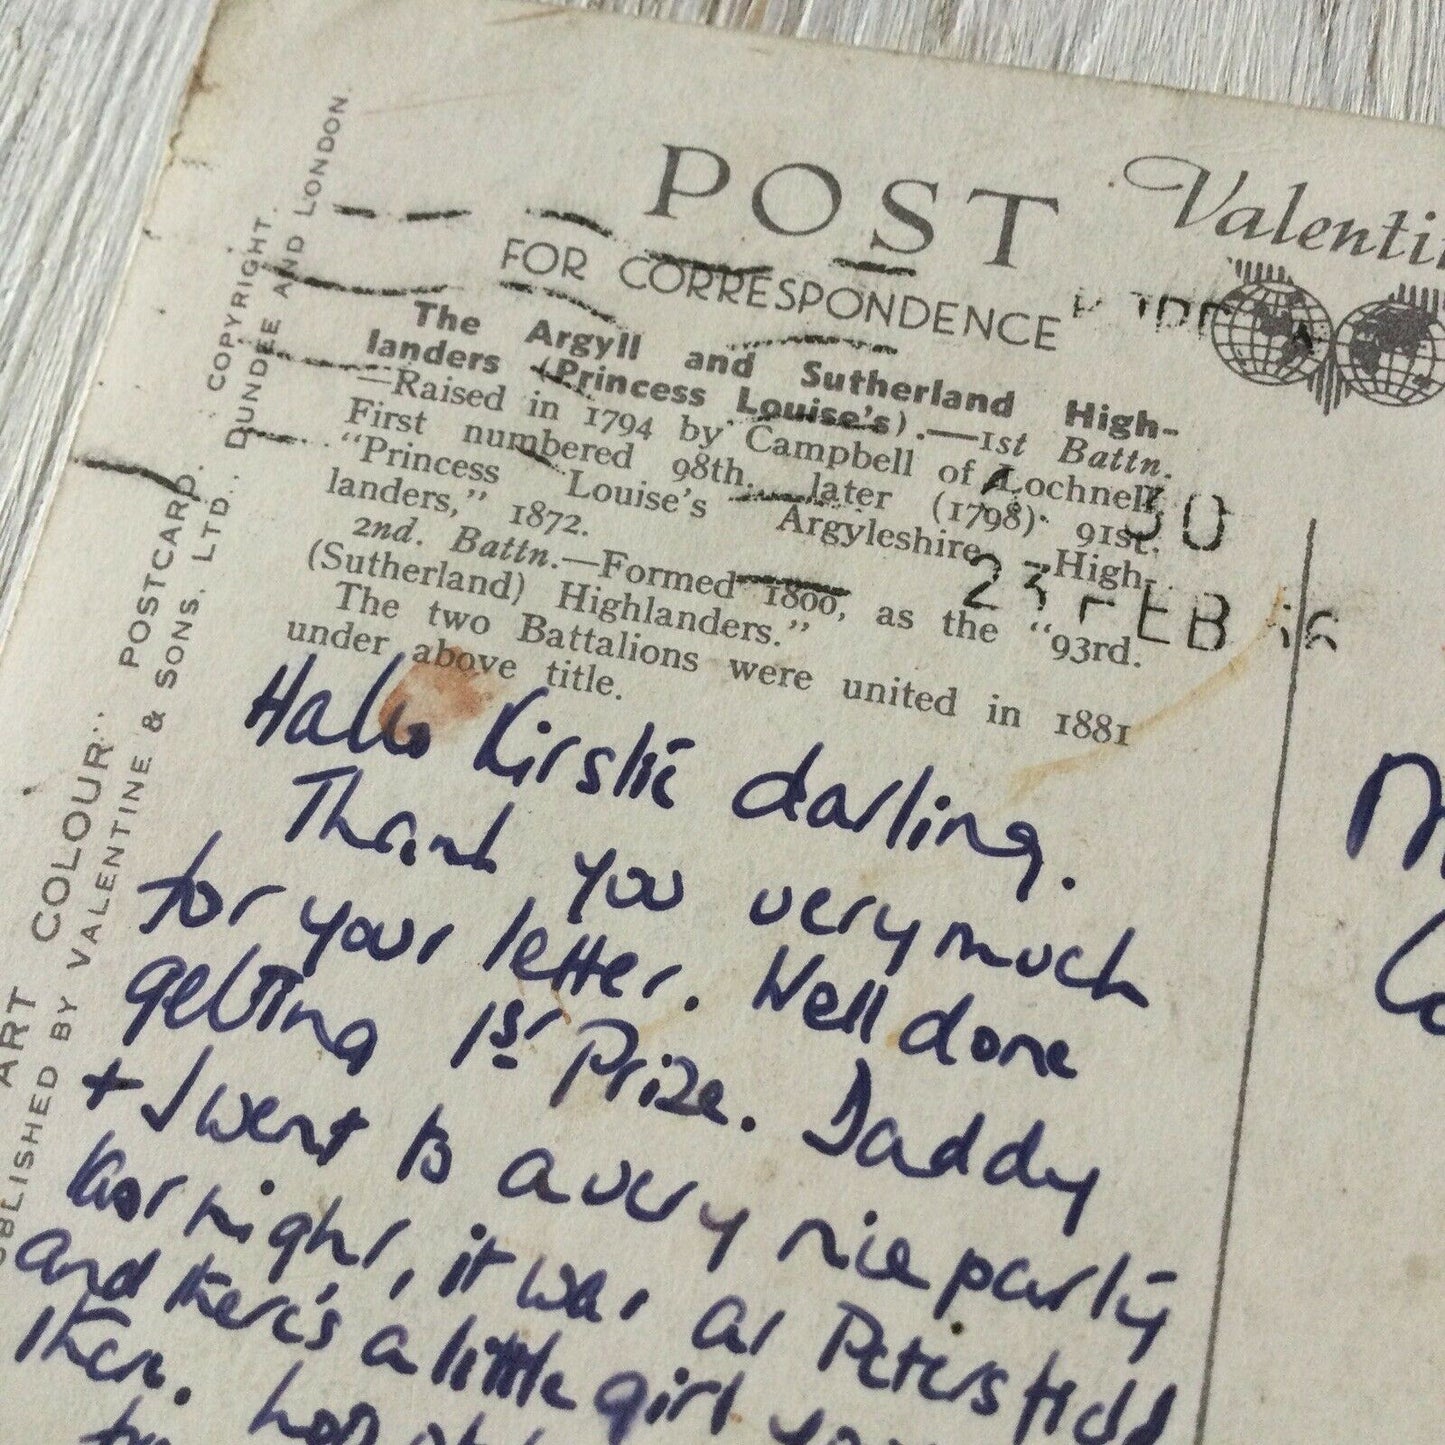 POST
Valentin
FOR CORRESPONDENCE
The Argyll and Sutherland High-
landers (Princess Louise's).—1st Battn.
—Raised in 1794 by Campbell of Lochnell.
First numbered 98th, later (1798) 91st.
"Princess Louise's Argyleshire High-
landers," 1872.
2nd. Battn.—Formed 1800, as the "93rd.
(Sutherland) Highlanders."
The two Battalions were united in 1881
under above title.
30
23 FEB
Hallo Kirstie darling.
Thank you very much
for your letter. Well done
getting 1st Prize. Daddy
+ I went to a very nice party
last night, it was at Petersfield
and there's a little girl
there.
ART COLOUR" POSTCARD. COPYRIGHT.
BLISHED BY VALENTINE & SONS, LTD., DUNDEE AND LONDON.